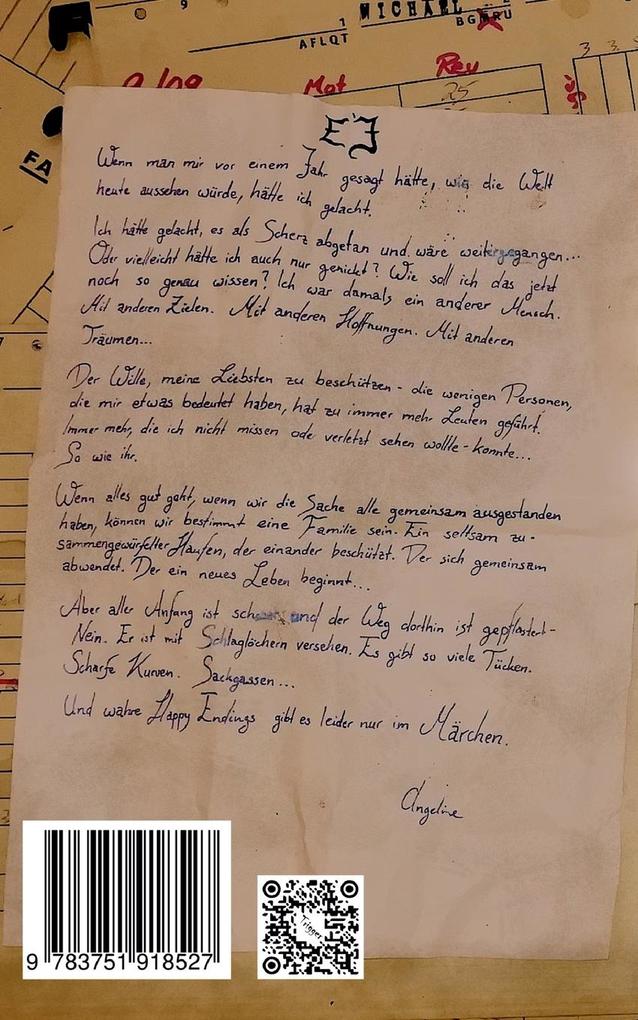 9
1
MICHAEL
BGMRU
AFLQT
Mat
Rev
25
3 3
FA
Wenn man mir vor einem Jahr gesagt hätte, wie die Welt
heute aussehen würde, hätte ich gelacht.
Ich hätte gelacht, es als Scherz abgetan und wäre weitergegangen...
Oder vielleicht hätte ich auch nur genickt? Wie soll ich das jetzt
noch so genau wissen? Ich war damals ein anderer Mensch.
Mit anderen Zielen. Mit anderen Hoffnungen. Mit anderen
Träumen...
Der Wille, meine Liebsten zu beschützen - die wenigen Personen,
die mir etwas bedeutet haben, hat zu immer mehr Leuten geführt.
Immer mehr, die ich nicht missen ode verletzt sehen wollte - konnte...
So wie ihr.
Wenn alles gut geht, wenn wir die Sache alle gemeinsam ausgestanden
haben, können wir bestimmt eine Familie sein. Ein seltsam zu-
sammengewürfelter Haufen, der einander beschützt. Der sich gemeinsam
abwendet. Der ein neues Leben beginnt...
Aber aller Anfang ist schwer und der Weg dorthin ist gepflastert-
Nein. Er ist mit Schlaglöchern versehen. Es gibt so viele Tücken.
Scharfe Kurven. Sackgassen...
Und wahre Happy Endings gibt es leider nur im Märchen.
Angeline
9 783751 918527
Trigger